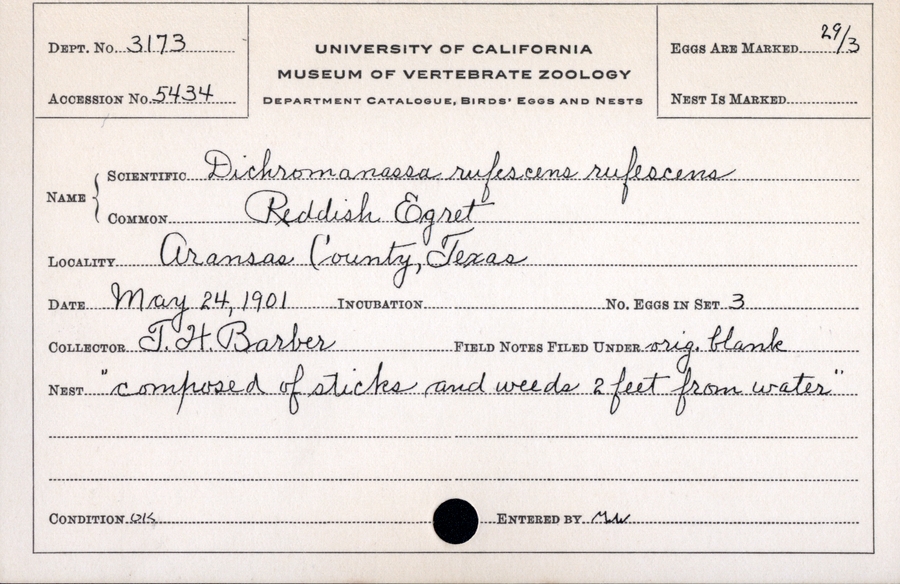 DEPT. NO. 3173
ACCESSION NO. 5434
UNIVERSITY OF CALIFORNIA
MUSEUM OF VERTEBRATE ZOOLOGY
DEPARTMENT CATALOGUE, BIRDS' EGGS AND NESTS
EGGS ARE MARKED 29/3
NEST IS MARKED
NAME
SCIENTIFIC Dichromanassa rufescens rufescens
COMMON Reddish Egret
LOCALITY Aransas County, Texas
DATE May 24, 1901 INCUBATION NO. EGGS IN SET 3
COLLECTOR T. H. Barber FIELD NOTES FILED UNDER orig. blank
NEST "composed of sticks and weeds 2 feet from water"
CONDITION OK ENTERED BY